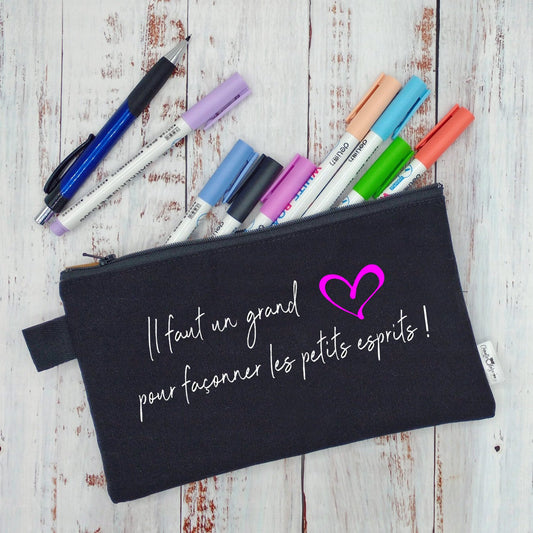 Il faut un grand
pour façonner les petits esprits !
deli
deli
WHITEBO